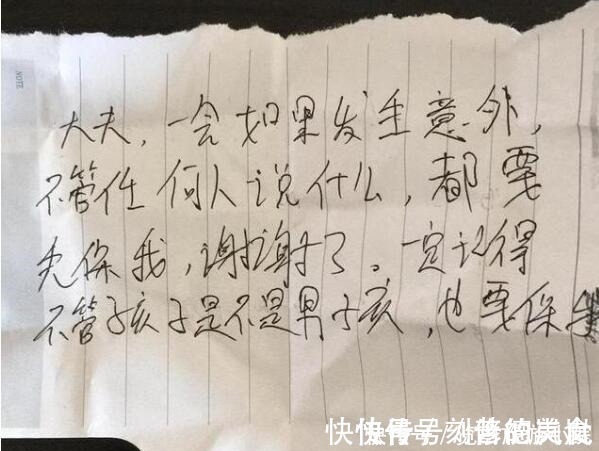 NOTE
大夫，一会如果发生意外，
不管任何人说什么，都要
先保我，谢谢了。一定记得
不管孩子是不是男孩，也要保